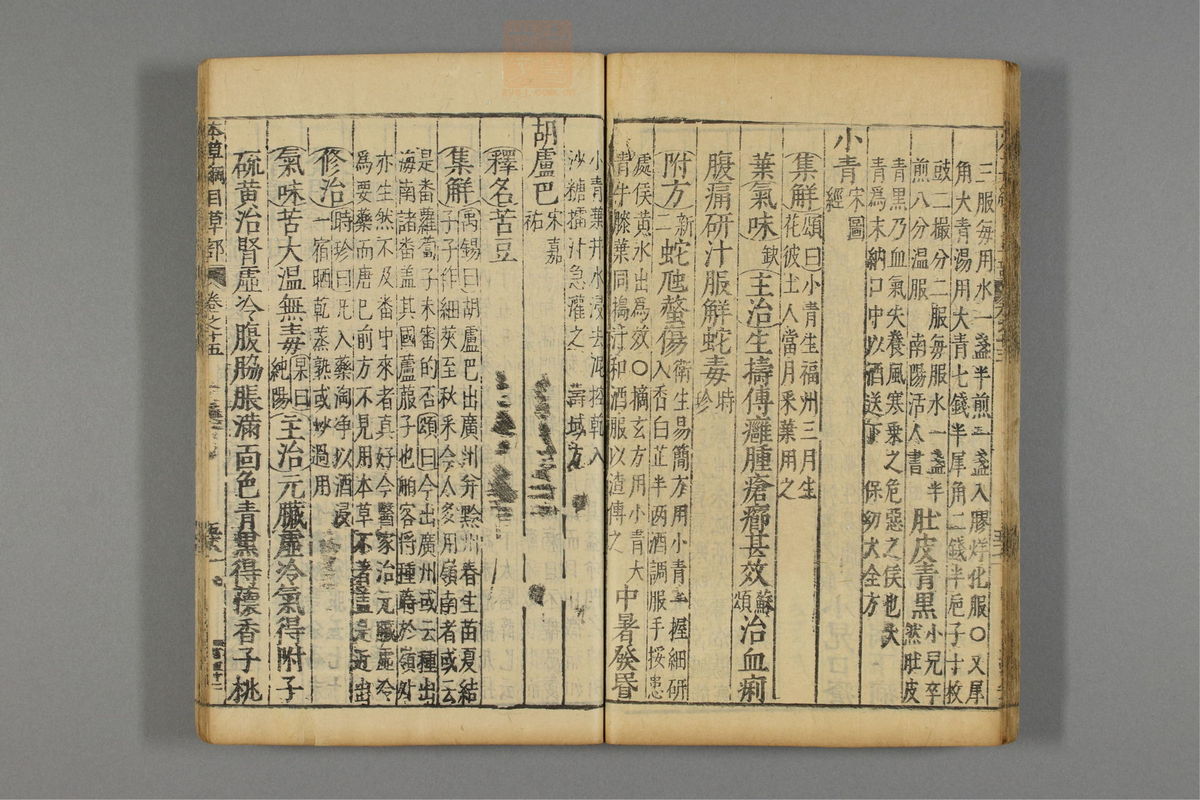 三服每用水一盞半煎一盞入膠烊化服○又犀
角大青湯用大青七錢半犀角二錢半巵子十枚
豉二撮分二服每服水一盞半
煎八分温服 南陽活人書
肚皮青黑 小兒卒
然肚皮
青黑乃血氣失養風寒乗之危惡之候也大
青爲末納口中以酒送下 保幼大全方
小青 宋圖經
集解 頌曰小青生福州三月生
花彼土人當月采葉用之
葉氣味 缺 主治生擣傅癰腫瘡癤甚效 蘇頌 治血痢
腹痛研汁服解蛇毒 時珍
附方 新二 蛇虺螫傷 衛生易簡方用小青一握細研
入香白芷半两酒調服手挼患
處候黄水出爲效○摘玄方用小青大
青牛膝葉同搗汁和酒服以渣傅之
中暑發昏
小青葉井水浸去泥控乾入
沙糖擂汁急灌之 壽域方
胡盧巴 宋嘉祐
釋名苦豆
集解 禹錫曰胡盧巴出廣州并黔州春生苗夏結
子子作細莢至秋采今人多用嶺南者或云
是番蘿蔔子未審的否頌曰今出廣州或云種出
海南諸番盖其國蘆菔子也舶客將種蒔於嶺外
亦生然不及番中來者真好今醫家治元臟虛冷
爲要藥而唐已前方不見用本草不著蓋是近出
修治 時珍曰凡入藥淘净以酒浸
一宿晒乾蒸熟或炒過用
氣味苦大温無毒 杲曰純陽 主治元臟虛冷氣得附子
硫黄治腎虛冷腹脇脹滿面色青黑得蘹香子桃
本草綱目草部 卷之十五